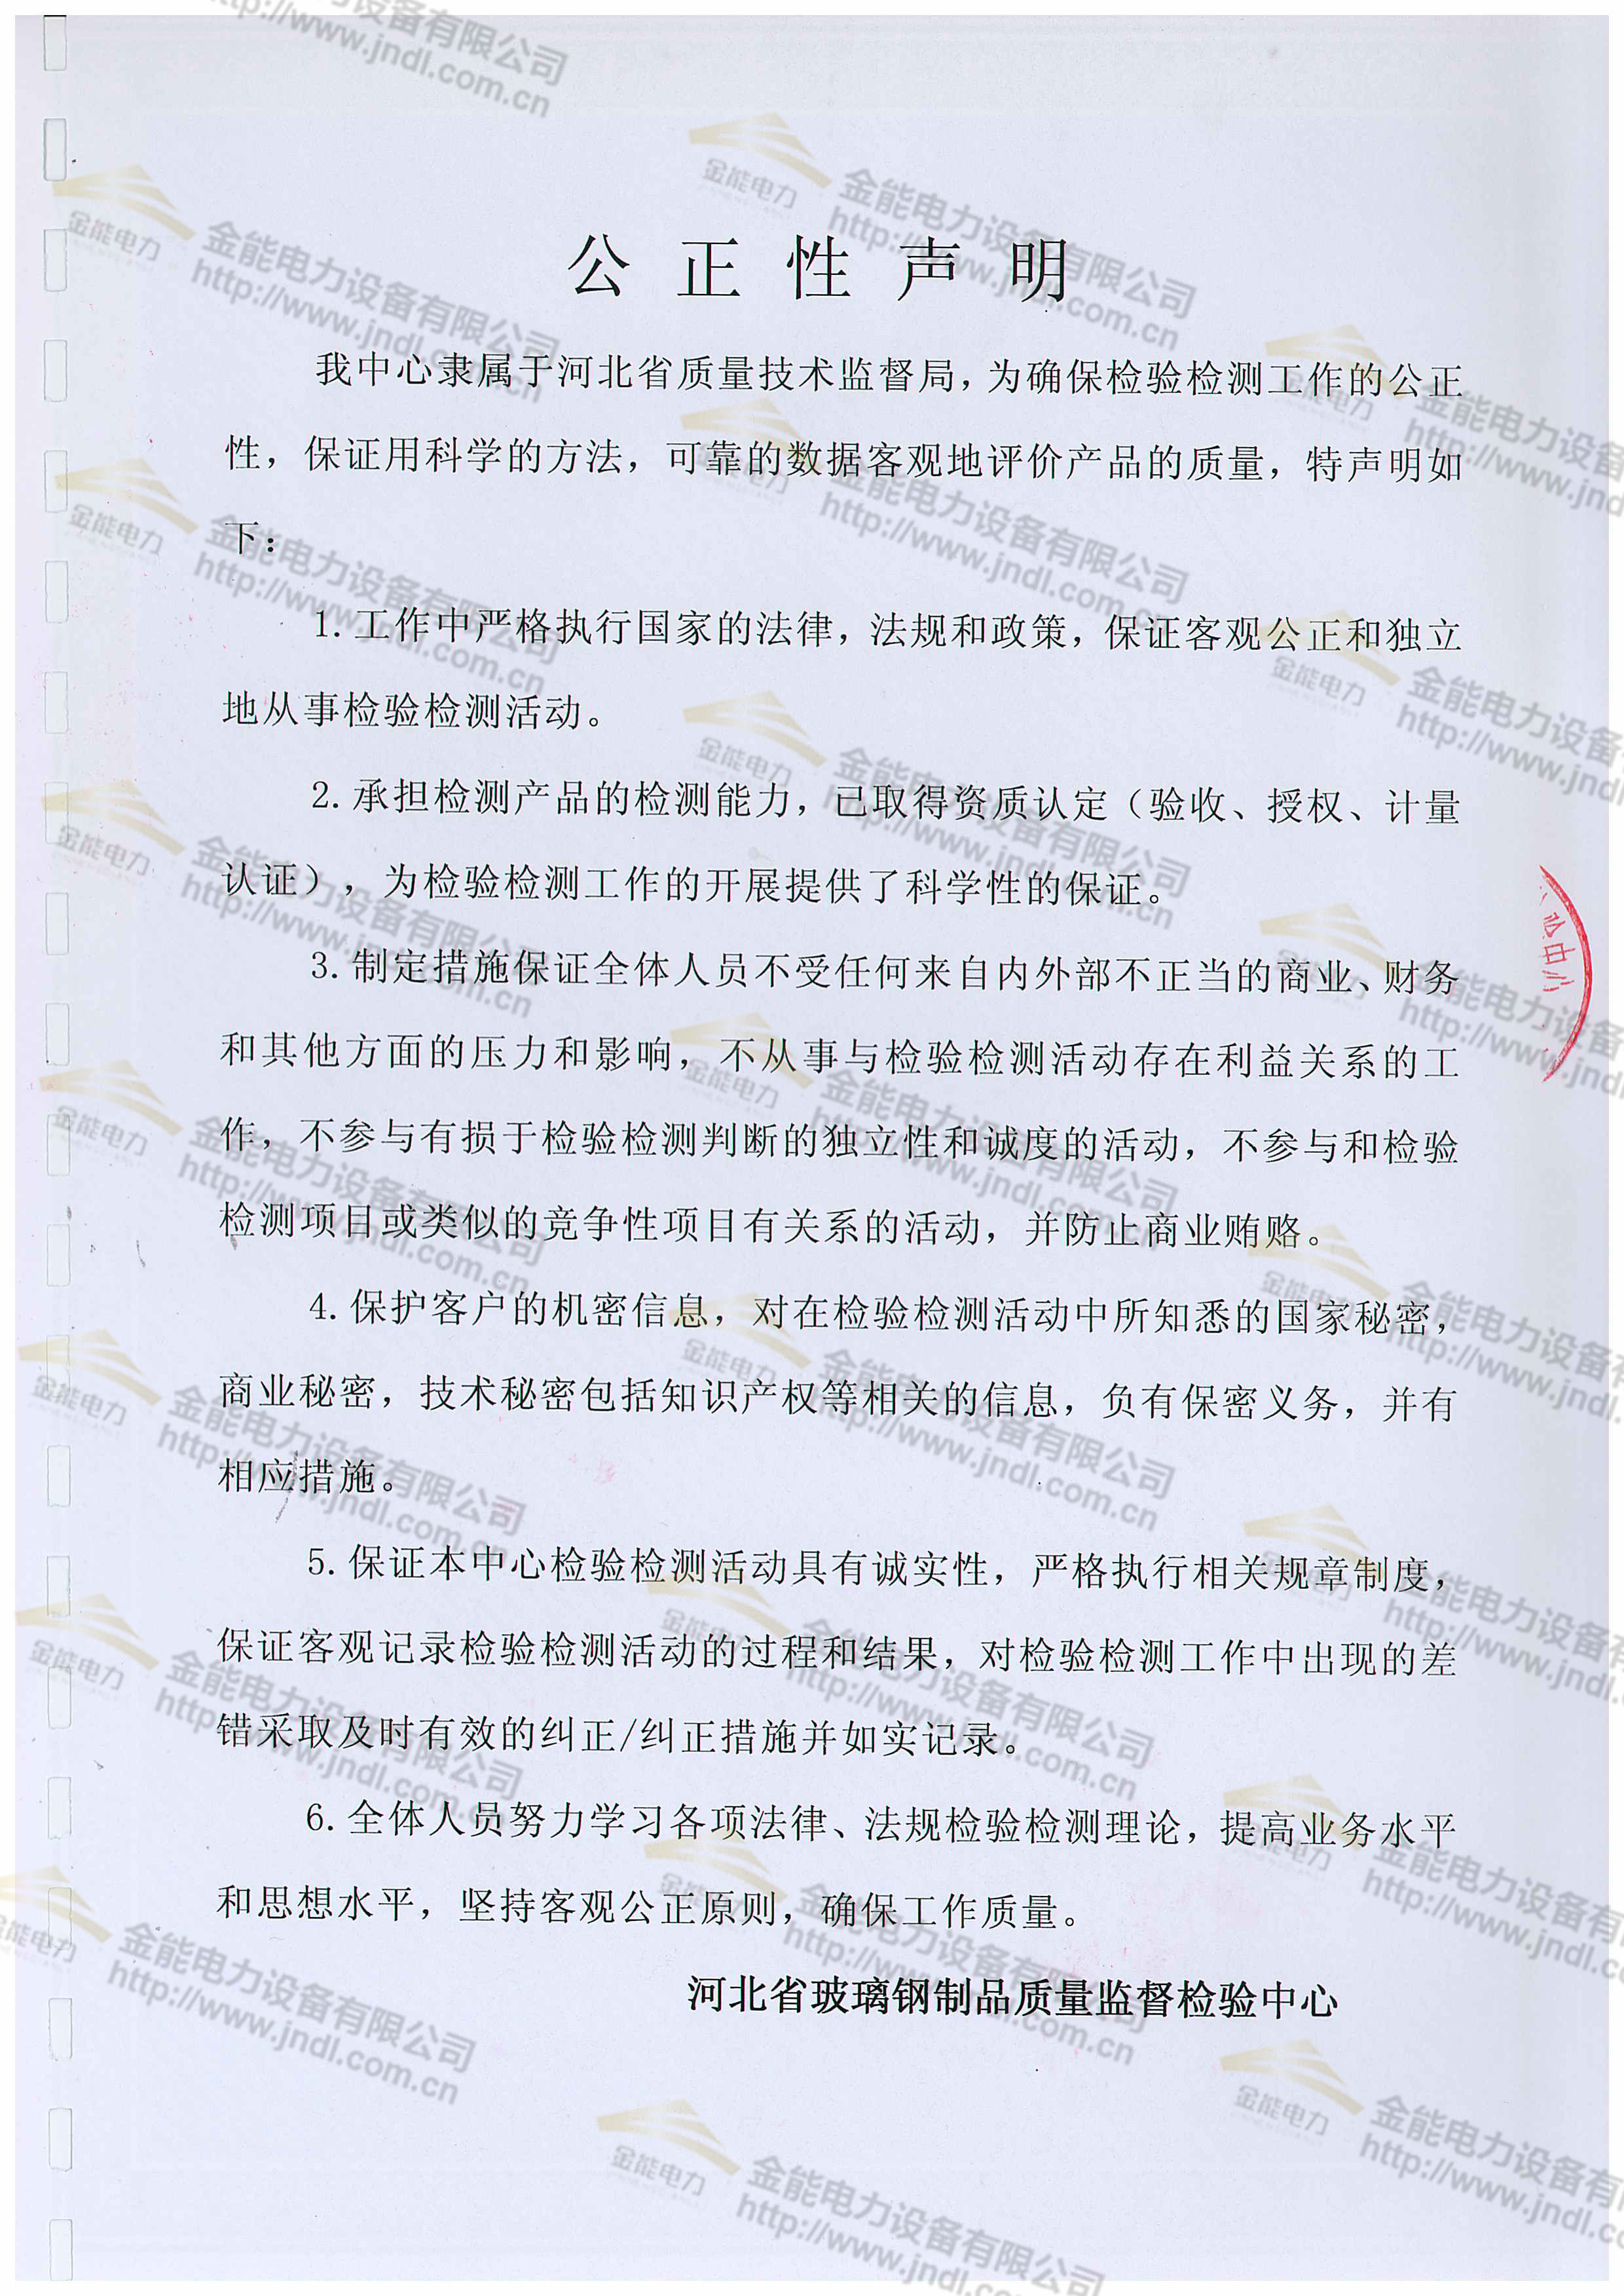 公正性声明
我中心隶属于河北省质量技术监督局，为确保检验检测工作的公正
性，保证用科学的方法，可靠的数据客观地评价产品的质量，特声明如
下：
1.工作中严格执行国家的法律，法规和政策，保证客观公正和独立
地从事检验检测活动。
2.承担检测产品的检测能力，已取得资质认定（验收、授权、计量
认证），为检验检测工作的开展提供了科学性的保证。
3.制定措施保证全体人员不受任何来自内外部不正当的商业、财务
和其他方面的压力和影响，不从事与检验检测活动存在利益关系的工
作，不参与有损于检验检测判断的独立性和诚度的活动，不参与和检验
检测项目或类似的竞争性项目有关系的活动，并防止商业贿赂。
4.保护客户的机密信息，对在检验检测活动中所知悉的国家秘密，
商业秘密，技术秘密包括知识产权等相关的信息，负有保密义务，并有
相应措施。
5.保证本中心检验检测活动具有诚实性，严格执行相关规章制度，
保证客观记录检验检测活动的过程和结果，对检验检测工作中出现的差
错采取及时有效的纠正/纠正措施并如实记录。
6.全体人员努力学习各项法律、法规检验检测理论，提高业务水平
和思想水平，坚持客观公正原则，确保工作质量。
河北省玻璃钢制品质量监督检验中心
金能电力
金能电力设备有限公司
http://www.jndl.com.cn
中心